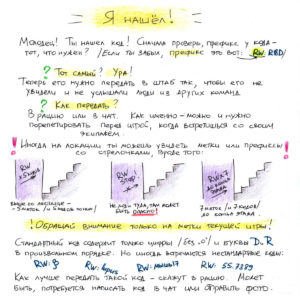 Я нашёл!
Молодец! Ты нашёл код! Сначала проверь, префикс у кода -
тот, что нужен? /Если ты забыл, префикс это вот: RW RBD/
? Тот самый? Ура!
Теперь его нужно передать в штаб так, чтобы его не
увидели и не услышали люди из других команд.
? Как передать?
В рацию или в чат. Как именно - можно и нужно
порепетировать перед игрой, когда встретишься со своим
экипажем
! Иногда на локации ты можешь увидеть метки или префиксы
со стрелочками, вроде того:
RW
RW
RW
быть опасно!
до конца этажа.
! Обращай внимание только на метки текущей игры!
Стандартный код содержит только цифры /без 0/ и буквы D, R
в произвольном порядке. Но иногда встречаются нестандартные коды:
RW: RW: RW: RW: 55.7389
Как лучше передать такой код - скажут в рацию. Может
быть, потребуется написать код в чат или отправить фото.